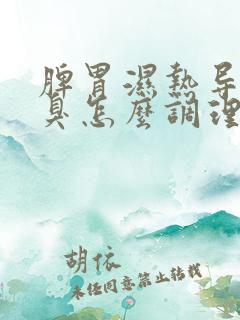 脾胃濕熱导
臭怎麽調理
胡依
未经同意禁止转载